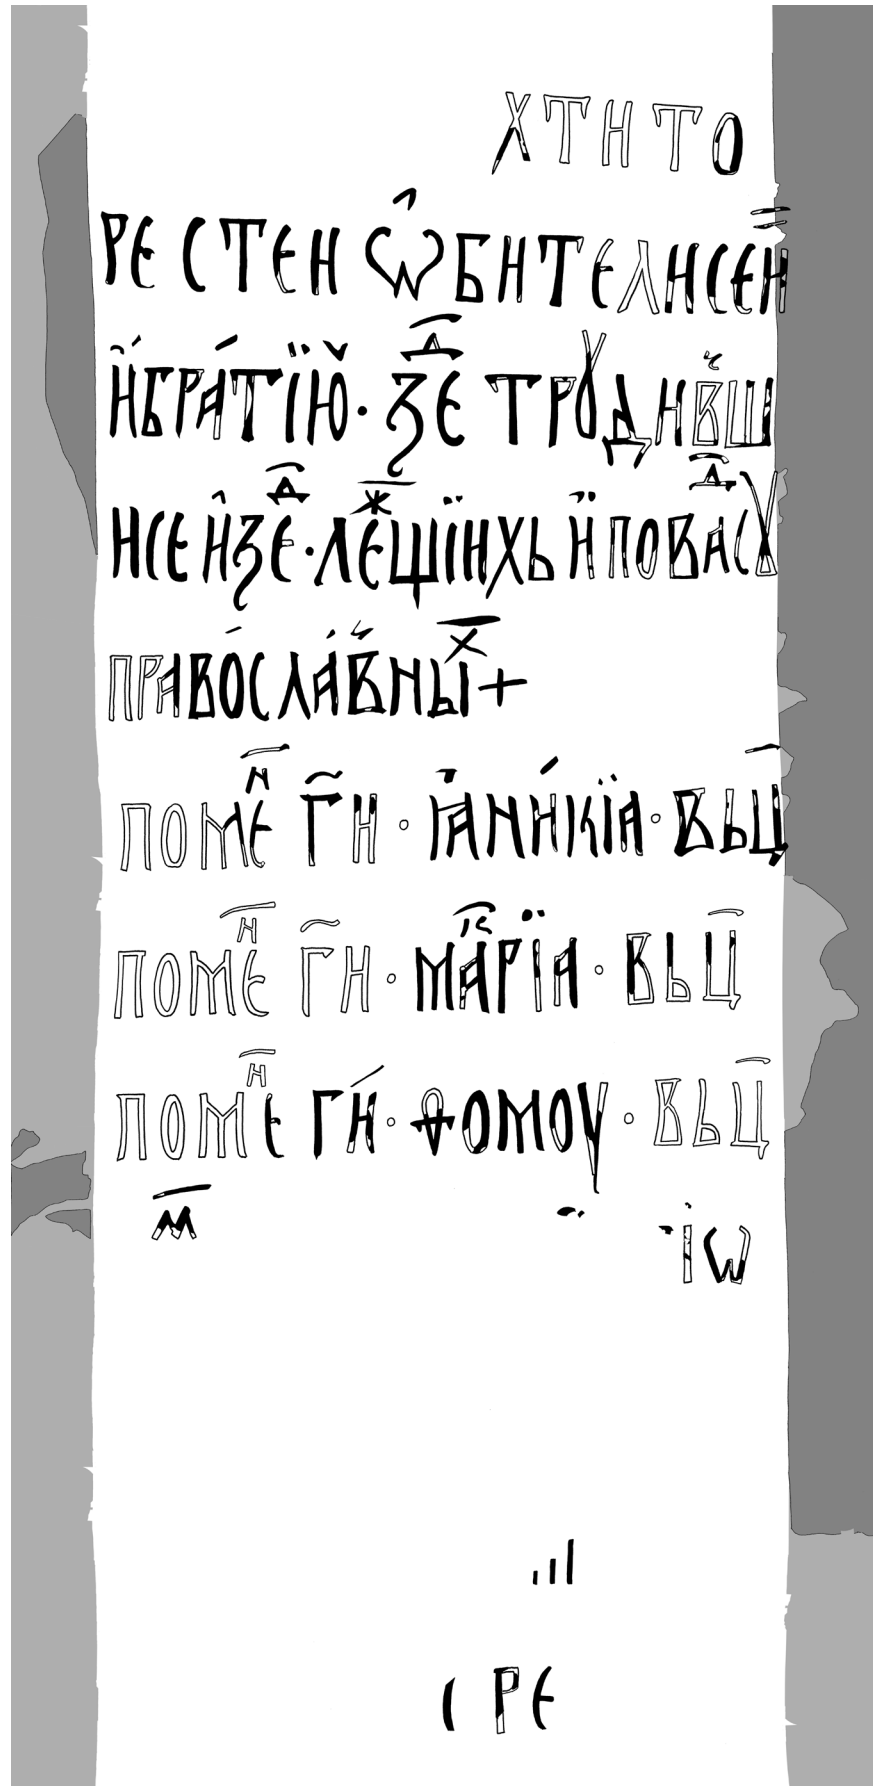 хтнто
ре стен ѡ̑бителисен҃
и҆бра́тїю̆ · зⷣе трꙋдив̆ш
исе и҆зⷣе · леⷤщїихь ӥ поваⷣсꙋ
пра́во́сла́в̆ныⷯ +
помеⷩ҇ г҃и · іа̓ни́кїа · вьц҃
помеⷩ҇ г҃и · марїа · вьц҃
помеⷩ҇ ги́ · ѳомоу · вьц҃
м҃ їѡ
ре